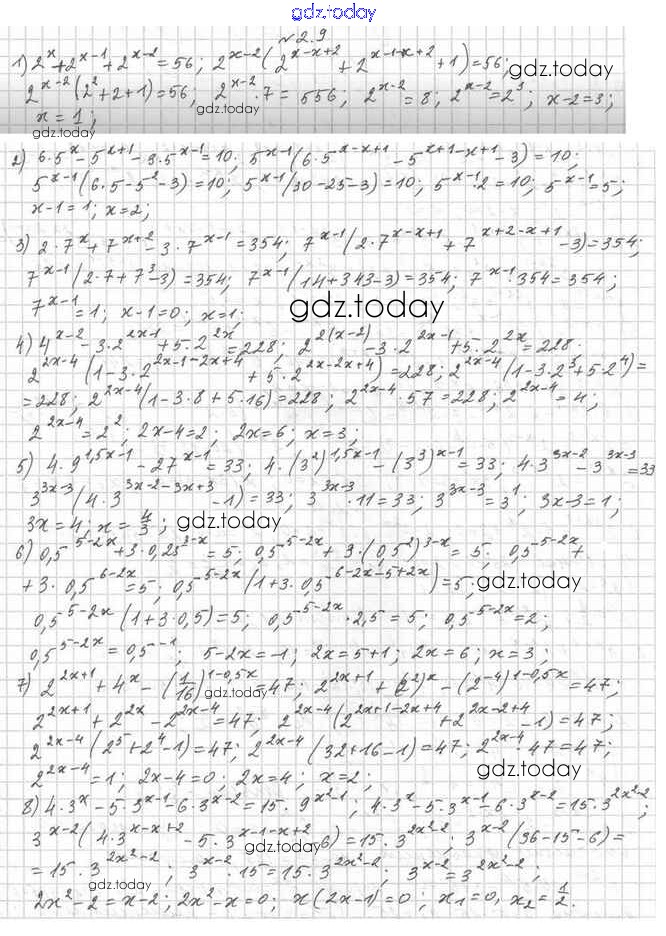 gdz.today
№2.9
1) 2^x + 2^{x-1} + 2^{x-2} = 56; 2^{x-2}(2^{x-x+2} + 2^{x-1-x+2} + 1) = 56; gdz.today
2^{x-2}(2^2+2+1)=56; 2^{x-2}·7 = 556; 2^{x-2} = 8; 2^{x-2} = 2^3; x-2=3;
gdz.today
gdz.today
x = 1;
2) 6·5^x - 5^{x+1} - 3·5^{x-1} = 10; 5^{x-1}(6·5^{x-x+1} - 5^{x+1-x+1} - 3) = 10;
5^{x-1}(6·5-5^2-3)=10; 5^{x-1}(30-25-3)=10; 5^{x-1}·2=10; 5^{x-1}=5;
x-1=1; x=2;
3) 2·7^x + 7^{x+2} - 3·7^{x-1} = 354; 7^{x-1}(2·7^{x-x+1} + 7^{x+2-x+1} - 3) = 354;
7^{x-1}(2·7+7^3-3)=354; 7^{x-1}(14+343-3)=354; 7^{x-1}·354=354;
7^{x-1}=1; x-1=0; x=1;
gdz.today
4) 4^{x-2} - 3·2^{2x-1} + 5·2^{2x} = 228; 2^{2(x-2)} - 3·2^{2x-1} + 5·2^{2x} = 228.
2^{2x-4}(1-3·2^{2x-1-2x+4} + 5·2^{2x-2x+4}) = 228; 2^{2x-4}(1-3·2^3+5·2^4) =
= 228; 2^{2x-4}(1-3·8+5·16)=228; 2^{2x-4}·57=228; 2^{2x-4} = 4;
2^{2x-4} = 2^2; 2x-4=2; 2x=6; x=3;
5) 4·9^{1,5x-1} - 27^{x-1} = 33; 4·(3^2)^{1,5x-1} - (3^3)^{x-1} = 33; 4·3^{3x-2} - 3^{3x-3} = 33
3^{3x-3}(4·3^{3x-2-3x+3} - 1) = 33; 3^{3x-3}·11=33; 3^{3x-3}=3^1; 3x-3=1;
3x=4; x = 4/3; gdz.today
6) 0,5^{5-2x} + 3·0,25^{3-x} = 5; 0,5^{5-2x} + 3·(0,5^2)^{3-x} = 5; 0,5^{5-2x} +
+ 3·0,5^{6-2x} = 5; 0,5^{5-2x}(1+3·0,5^{6-2x-5+2x}) = 5; gdz.today
0,5^{5-2x}(1+3·0,5)=5; 0,5^{5-2x}·2,5=5; 0,5^{5-2x}=2;
0,5^{5-2x}=0,5^{-1}; 5-2x=-1; 2x=5+1; 2x=6; x=3;
7) 2^{2x+1} + 4^x - (1/16)^{1-0,5x} = 47; 2^{2x+1} + (2^2)^x - (2^{-4})^{1-0,5x} = 47;
gdz.today
2^{2x+1} + 2^{2x} - 2^{2x-4} = 47; 2^{2x-4}(2^{2x+1-2x+4} + 2^{2x-2+4} - 1) = 47;
2^{2x-4}(2^5+2^4-1)=47; 2^{2x-4}(32+16-1)=47; 2^{2x-4}·47=47;
2^{2x-4}=1; 2x-4=0; 2x=4; x=2; gdz.today
8) 4·3^x - 5·3^{x-1} - 6·3^{x-2} = 15·9^{x^2-1}; 4·3^x - 5·3^{x-1} - 6·3^{x-2} = 15·3^{2x^2-2};
3^{x-2}(4·3^{x-x+2} - 5·3^{x-1-x+2} 6) = 15·3^{2x^2-2}; 3^{x-2}(36-15-6) =
gdz.today
= 15·3^{2x^2-2}; 3^{x-2}·15=15·3^{2x^2-2}; 3^{x-2}=3^{2x^2-2};
gdz.today
gdz.today
2x^2-2=x-2; 2x^2-x=0; x(2x-1)=0; x_1=0, x_2=1/2.